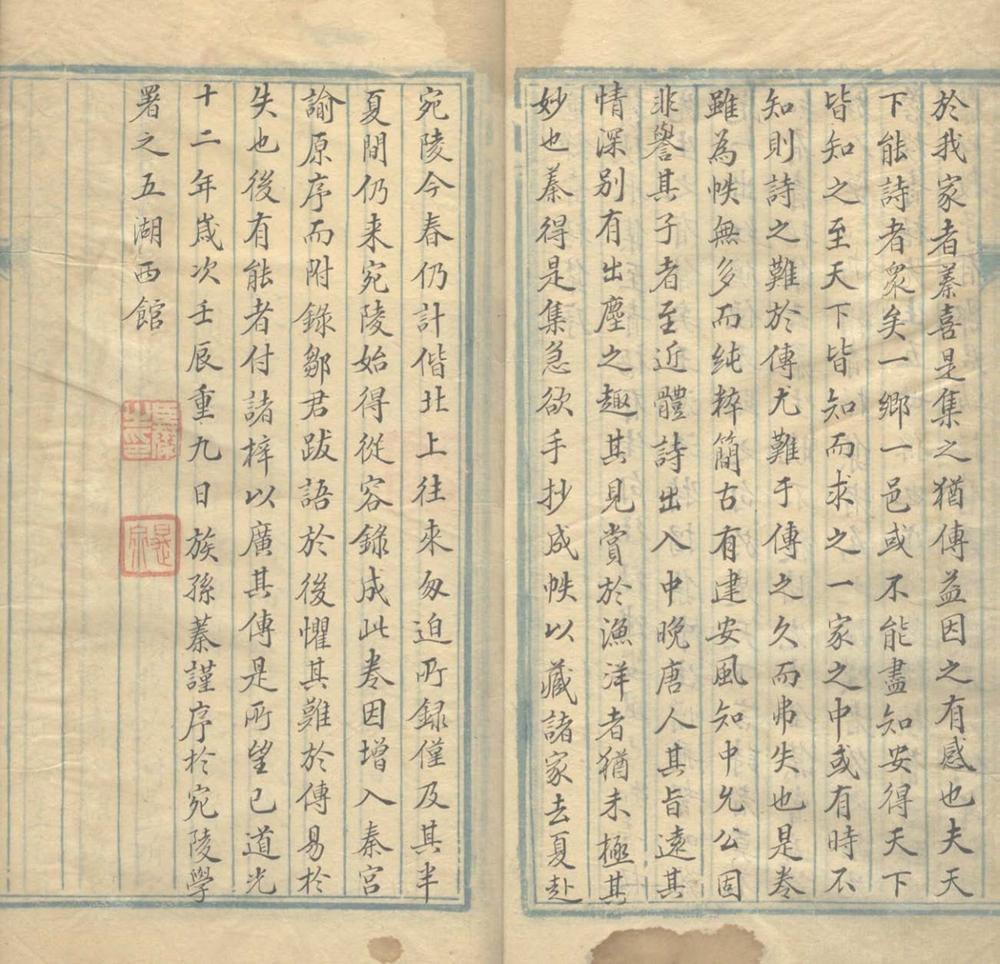 於我家者蓁喜是集之猶傳益因之有感也夫天
下能詩者衆矣一鄉一邑或不能盡知安得天下
皆知之至天下皆知而求之一家之中或有時不
知則詩之難於傳尤難于傳之久而弗失也是卷
雖為帙無多而純粹簡古有建安風知中允公固
非譽其子者至近體詩出入中晚唐人其旨遠其
情深别有出塵之趣其見賞於漁洋者猶未極其
妙也蓁得是集急欲手抄成帙以藏諸家去夏赴
宛陵今春仍計偕北上往來匆迫所録僅及其半
夏間仍来宛陵始得從容錄成此卷因增入秦宮
諭原序而附錄鄒君跋語於後懼其難於傳易於
失也後有能者付諸梓以廣其傳是所望已道光
十二年歲次壬辰重九日族孫蓁謹序於宛陵學
署之五湖西館